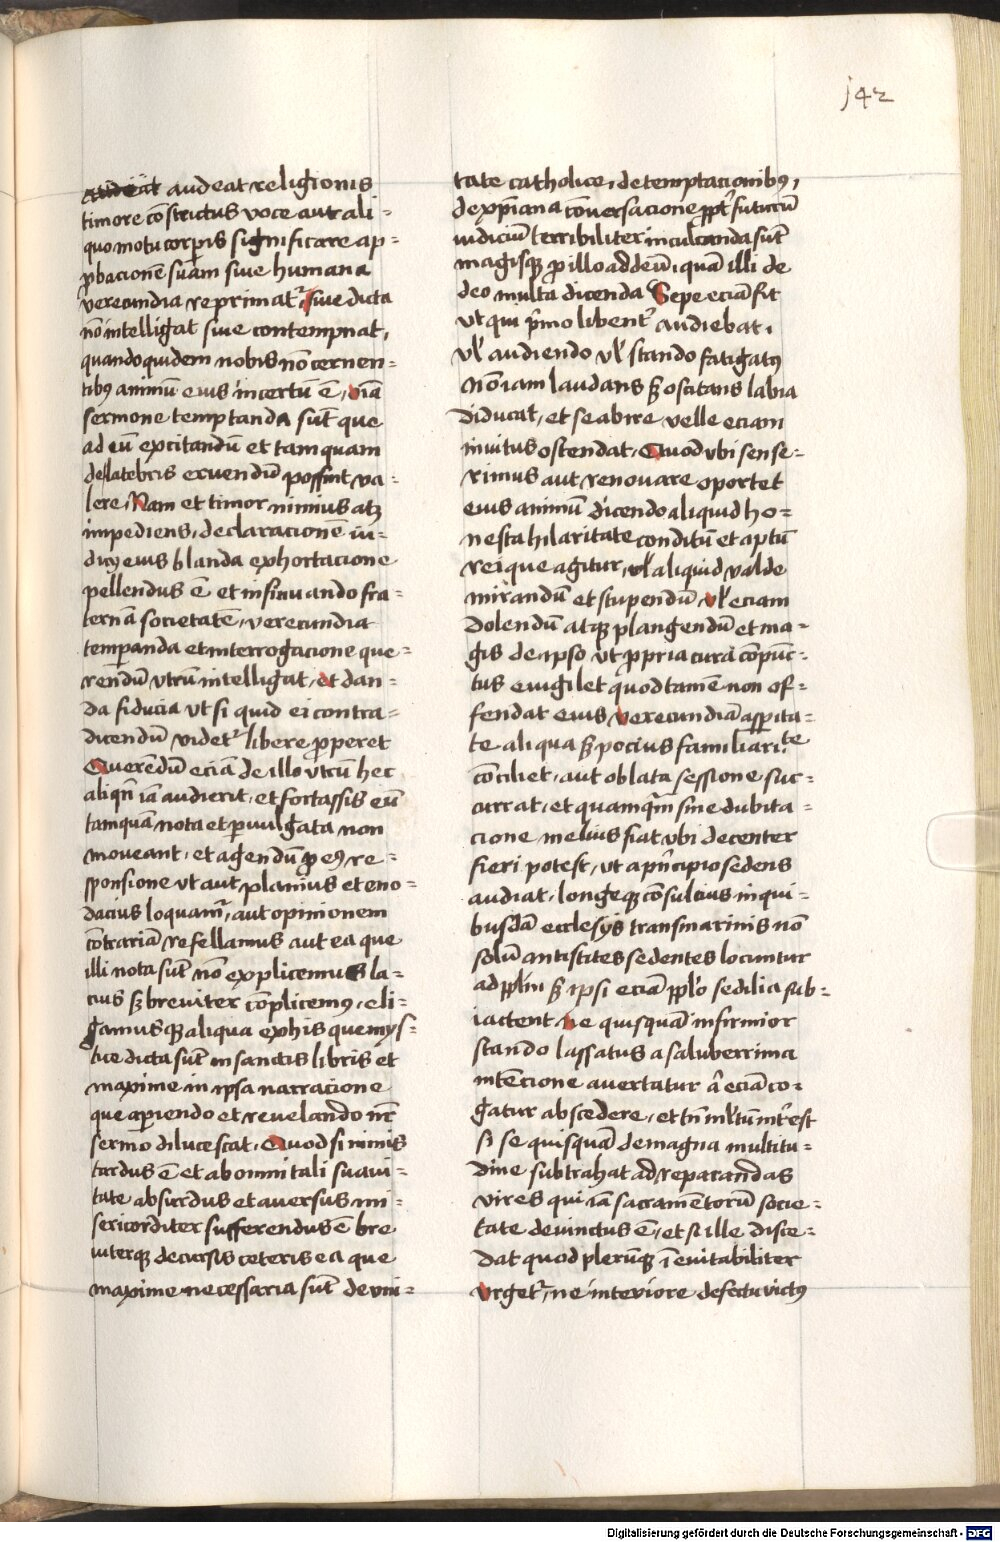 142
audeat religionis
timore cōstrictus voce aut ali-
quo motu corꝑis significare ap-
ꝓbacionē suam siue humana
verecundia reprimatᷣ siue dicta
nō intelligat siue contempnat,
quandoquidem nobis nō cernen-
tibꝫ animū eius incertū ē, viā
sermone temptanda sūt que
ad eū excitandū et tamquam
de latebris eruendū possint va-
lere. Nam et timor nimius atqꝫ
impediens, declaracionē iu-
dicij eius blanda exhortacione
pellendus ē et insinuando fra-
ternā societatē, verecundia
temperanda et interrogacione que-
rendū vtrū intelligat, et dan-
da fiducia ut si quid ei contra-
dicendū videtᷣ libere ꝓperet
Querendū eciā de illo vtrū hec
aliqn̄ iā audierit, et fortassis eū
tamquā nota et ꝑuulgata non
moueant, et agendū ꝓ eiꝰ re-
sponsione vt aut planius et eno-
dacius loquamᷣ, aut opinionem
cōtrariā refellamus aut ea que
illi nota sūt nō explicemus la-
cius sꝫ breuiter cōplicemꝰ, eli-
gamusqꝫ aliqua ex his que mys-
tice dicta sūt in sanctis libris et
maxime in ipsa narracione
que aperiendo et reuelando nr̄
sermo dilucescat. Quod si nimis
tardus ē et ab omni tali suaui-
tate absurdus et auersus mi-
sericorditer sufferendus ē bre
uiterqꝫ decursis ceteris ea que
maxime necessaria sūt de vni-
tate catholice, de temptacionibꝫ,
de xp̄iana cōuersacione ꝓpt̄ futurū
iudiciū terribiliter inculcanda sūt
magisqꝫ ꝓ illo ad deū, quā illi de
deo multa dicenda Sepe eciā fit
vt qui pᷓmo libentᷣ audiebat,
vl̛ audiendo vl̛ stando fatigatꝰ
nō iam laudans sꝫ oscitans labia
diducat, et se abire velle eciam
inuitus ostendat. Quod vbi sense-
rimus aut renouare oportet
eius animū dicendo aliquid ho-
nesta hilaritate conditū et aptū
rei que agitur, vl̛ aliquid valde
mirandū et stupendū, vl̛ eciam
dolendū atqꝫ plangendū et ma-
gis de ipso vt ꝓpria cura cōpūc-
tus euigilet quod tamē non of-
fendat eius verecundiā asꝑita-
te aliqua sꝫ pocius familiarite
cōciliet, aut oblata sessione suc-
currat, et quamqꝫ sine dubita-
cione melius fiat vbi decenter
fieri potest, vt a pᷓncipio sedens
audiat, longeqꝫ cōsulcius in qui-
busdā ecclesijs transmarinis nō
solū antistites sedentes locuntur
ad pplm̄ sꝫ ipsi eciā pplo̍ sedilia sub-
iactent ne quisquā infirmior
stando lassatus a saluberrima
intēcione auertatur aut eciā co-
gatur abscedere, et tn̄ ml̛tū int̄est
si se quisquā de magna multitu-
dine subtrahat ad reparandas
vires qui iā sacramētorū socie-
tate deuinctus ē, et si ille disce-
dat quod plerūqꝫ īeuitabiliter
vrgetᷣ, ne interiore defectu victꝰ
Digitalisierung gefördert durch die Deutsche Forschungsgemeinschaft - DFG